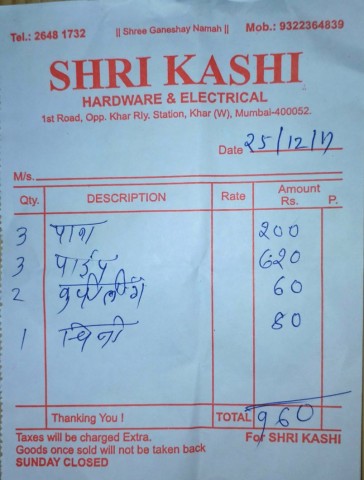 Tel.: 2648 1732 || Shree Ganeshay Namah || Mob.: 9322364839
SHRI KASHI
HARDWARE & ELECTRICAL
1st Road, Opp. Khar Rly. Station, Khar (W), Mumbai-400052.
Date 25/12/17
M/s.
Qty. DESCRIPTION Rate Amount
Rs. P.
3 200
3 पाईप 620
2 60
1 80
Thanking You ! TOTAL 960
Taxes will be charged Extra. For SHRI KASHI
Goods once sold will not be taken back
SUNDAY CLOSED